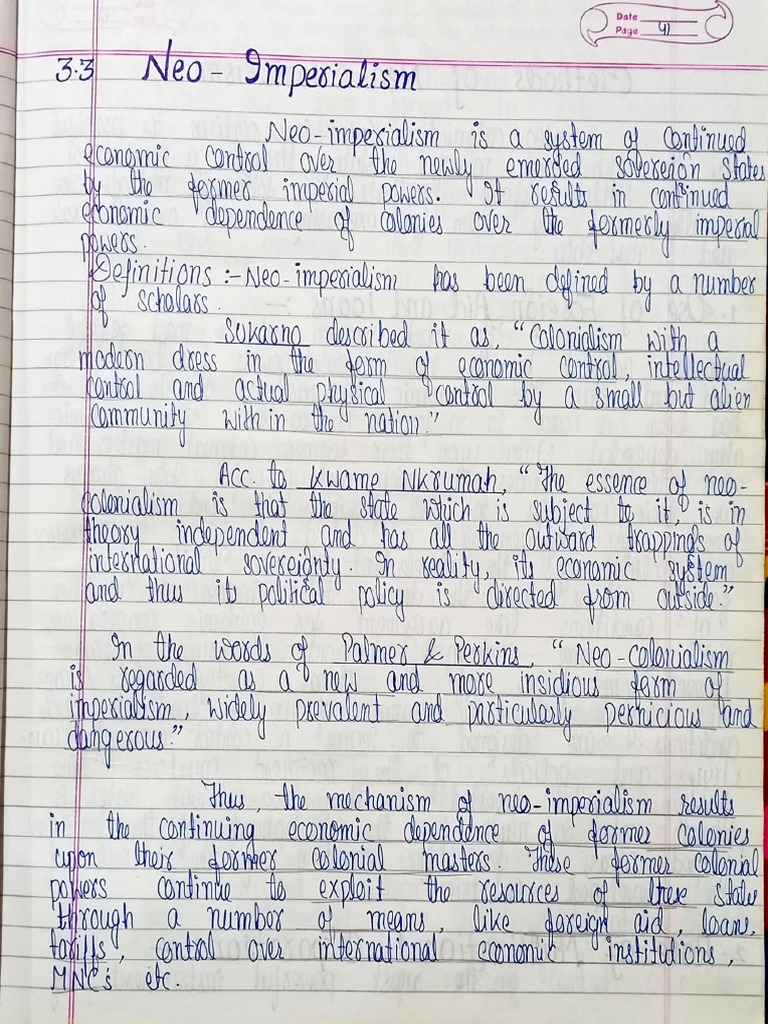 Date
Page 41
3.3 Neo-Imperialism
Neo-imperialism is a system of continued
economic control over the newly emerged sovereign states
by the former imperial powers. It results in continued
economic dependence of colonies over the formerly imperial
powers.
Definitions :- Neo-imperialism has been defined by a number
of scholars.
Sukarno described it as, "Colonialism with a
modern dress in the form of economic control, intellectual
control and actual physical control by a small but alien
community with in the nation."
Acc. to Kwame Nkrumah, "The essence of neo-
colonialism is that the state which is subject to it, is in
theory independent and has all the outward trappings of
international sovereignty. In reality, its economic system
and thus its political policy is directed from outside."
In the words of Palmer & Perkins, "Neo-colonialism
is regarded as a new and more insidious form of
imperialism, widely prevalent and particularly pernicious and
dangerous."
Thus, the mechanism of neo-imperialism results
in the continuing economic dependence of former colonies
upon their former colonial masters. These former colonial
powers continue to exploit the resources of these state
through a number of means, like foreign aid, loans,
tariffs, control over international economic institutions,
MNC's etc.